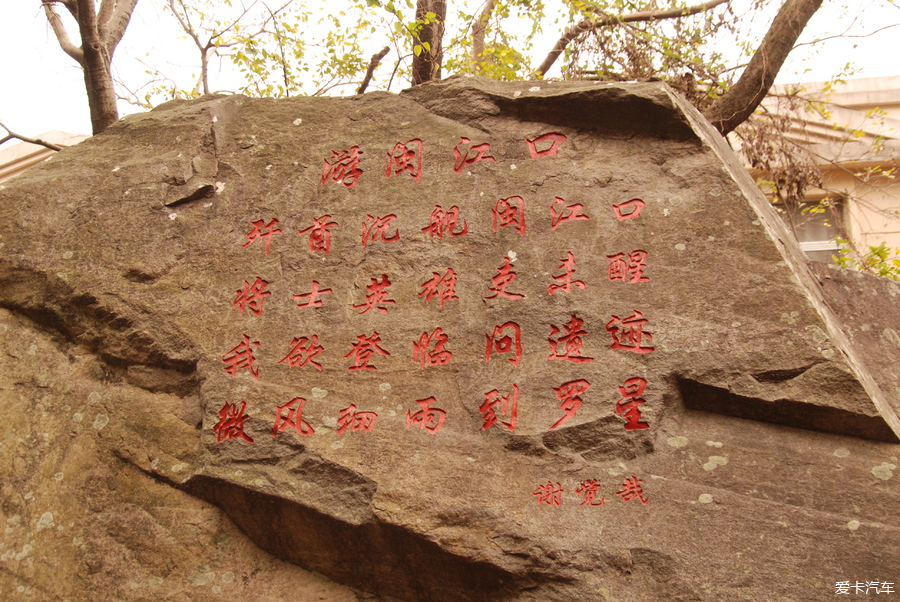 游闽江口
歼酋沉舰闽江口
将士英雄吏未醒
我欲登临问遗迹
微风细雨到罗星
谢觉哉
爱卡汽车